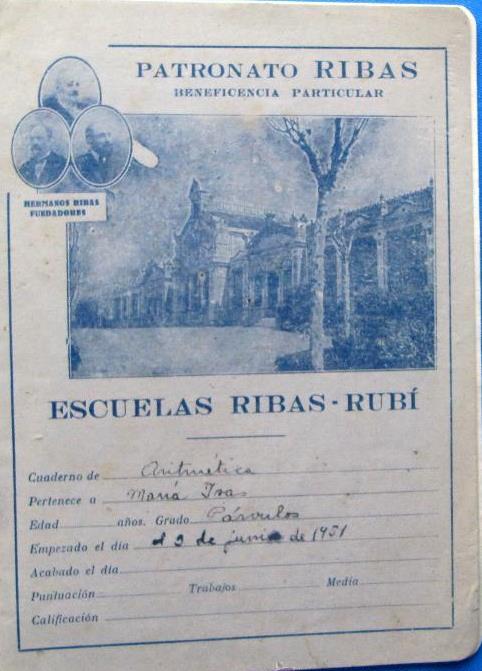 PATRONATO RIBAS
BENEFICENCIA PARTICULAR
HERMANOS RIBAS
FUNDADORES
ESCUELAS RIBAS - RUBÍ
Cuaderno de Aritmética
Pertenece a María
Edad años. Grado Párvulos
Empezado el día el 9 de junio de 1951
Acabado el día
Puntuación Trabajos Media
Calificación